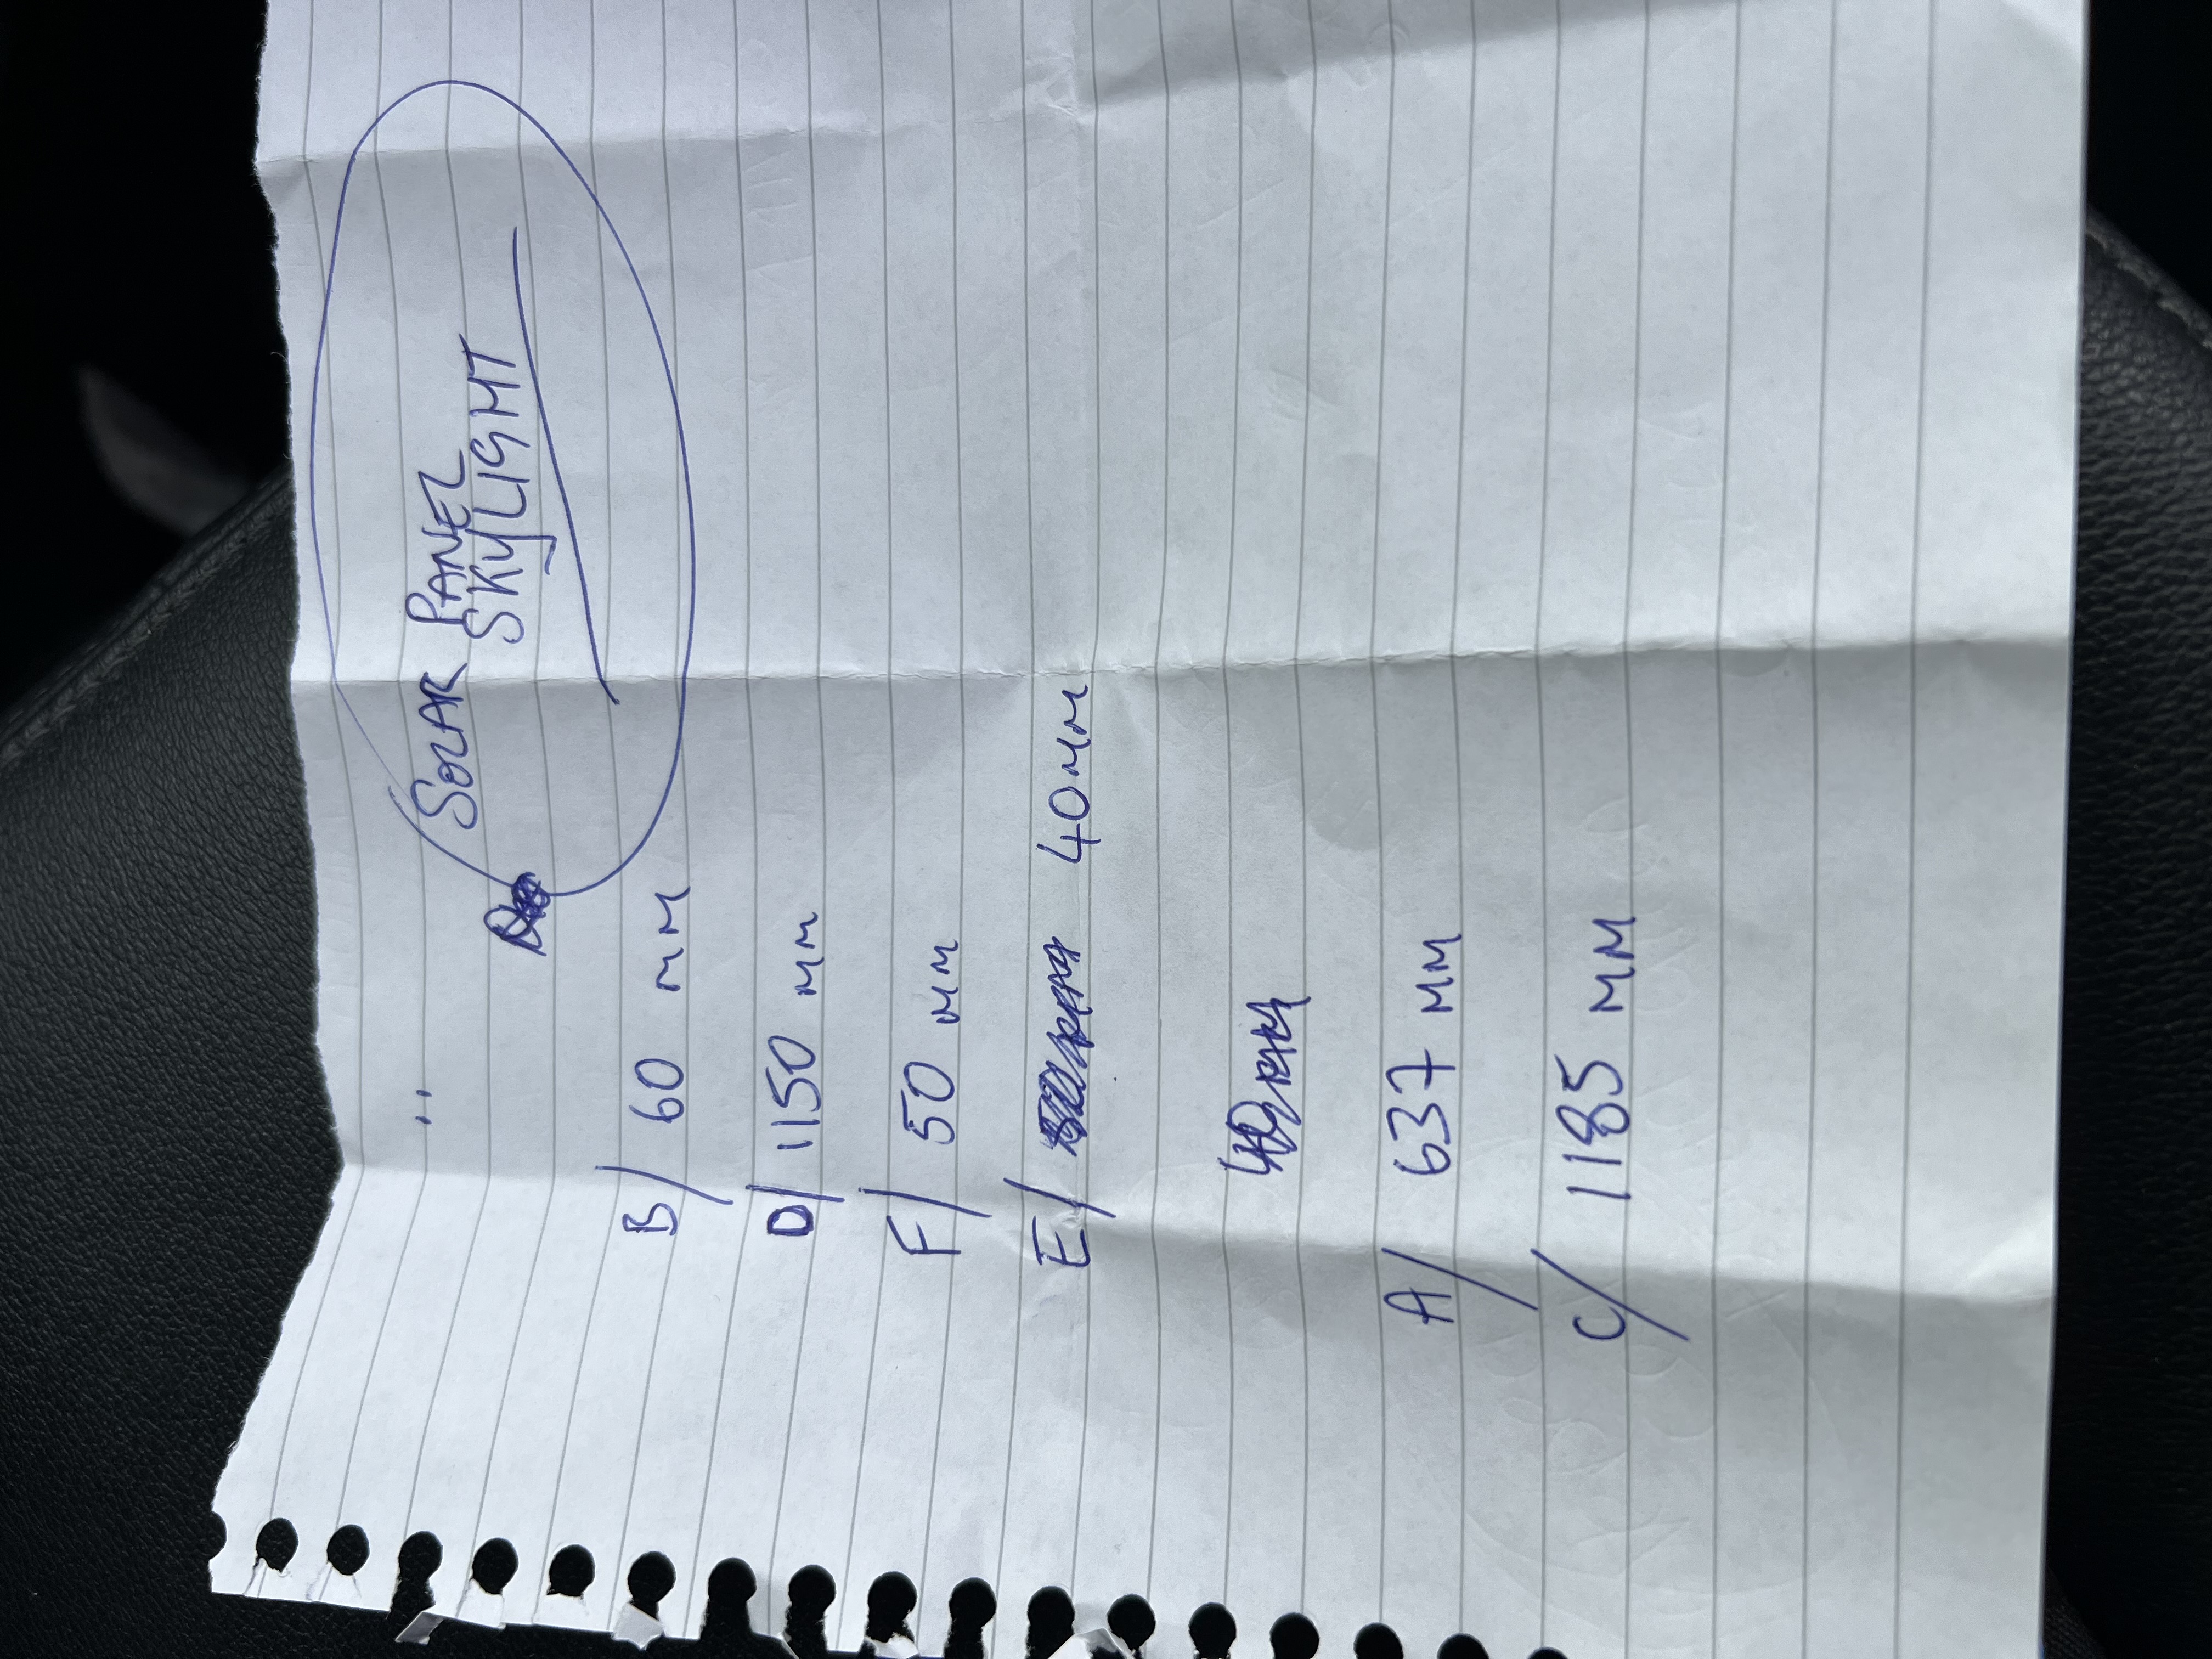 SOLAR PANEL
SKYLIGHT
B/ 60 MM
D/ 1150 MM
F/ 50 MM
E/ 40MM
A/ 637 MM
C/ 1185 MM